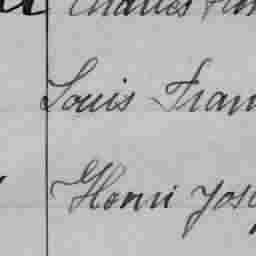 Charles
Louis Fran
Henri Jos